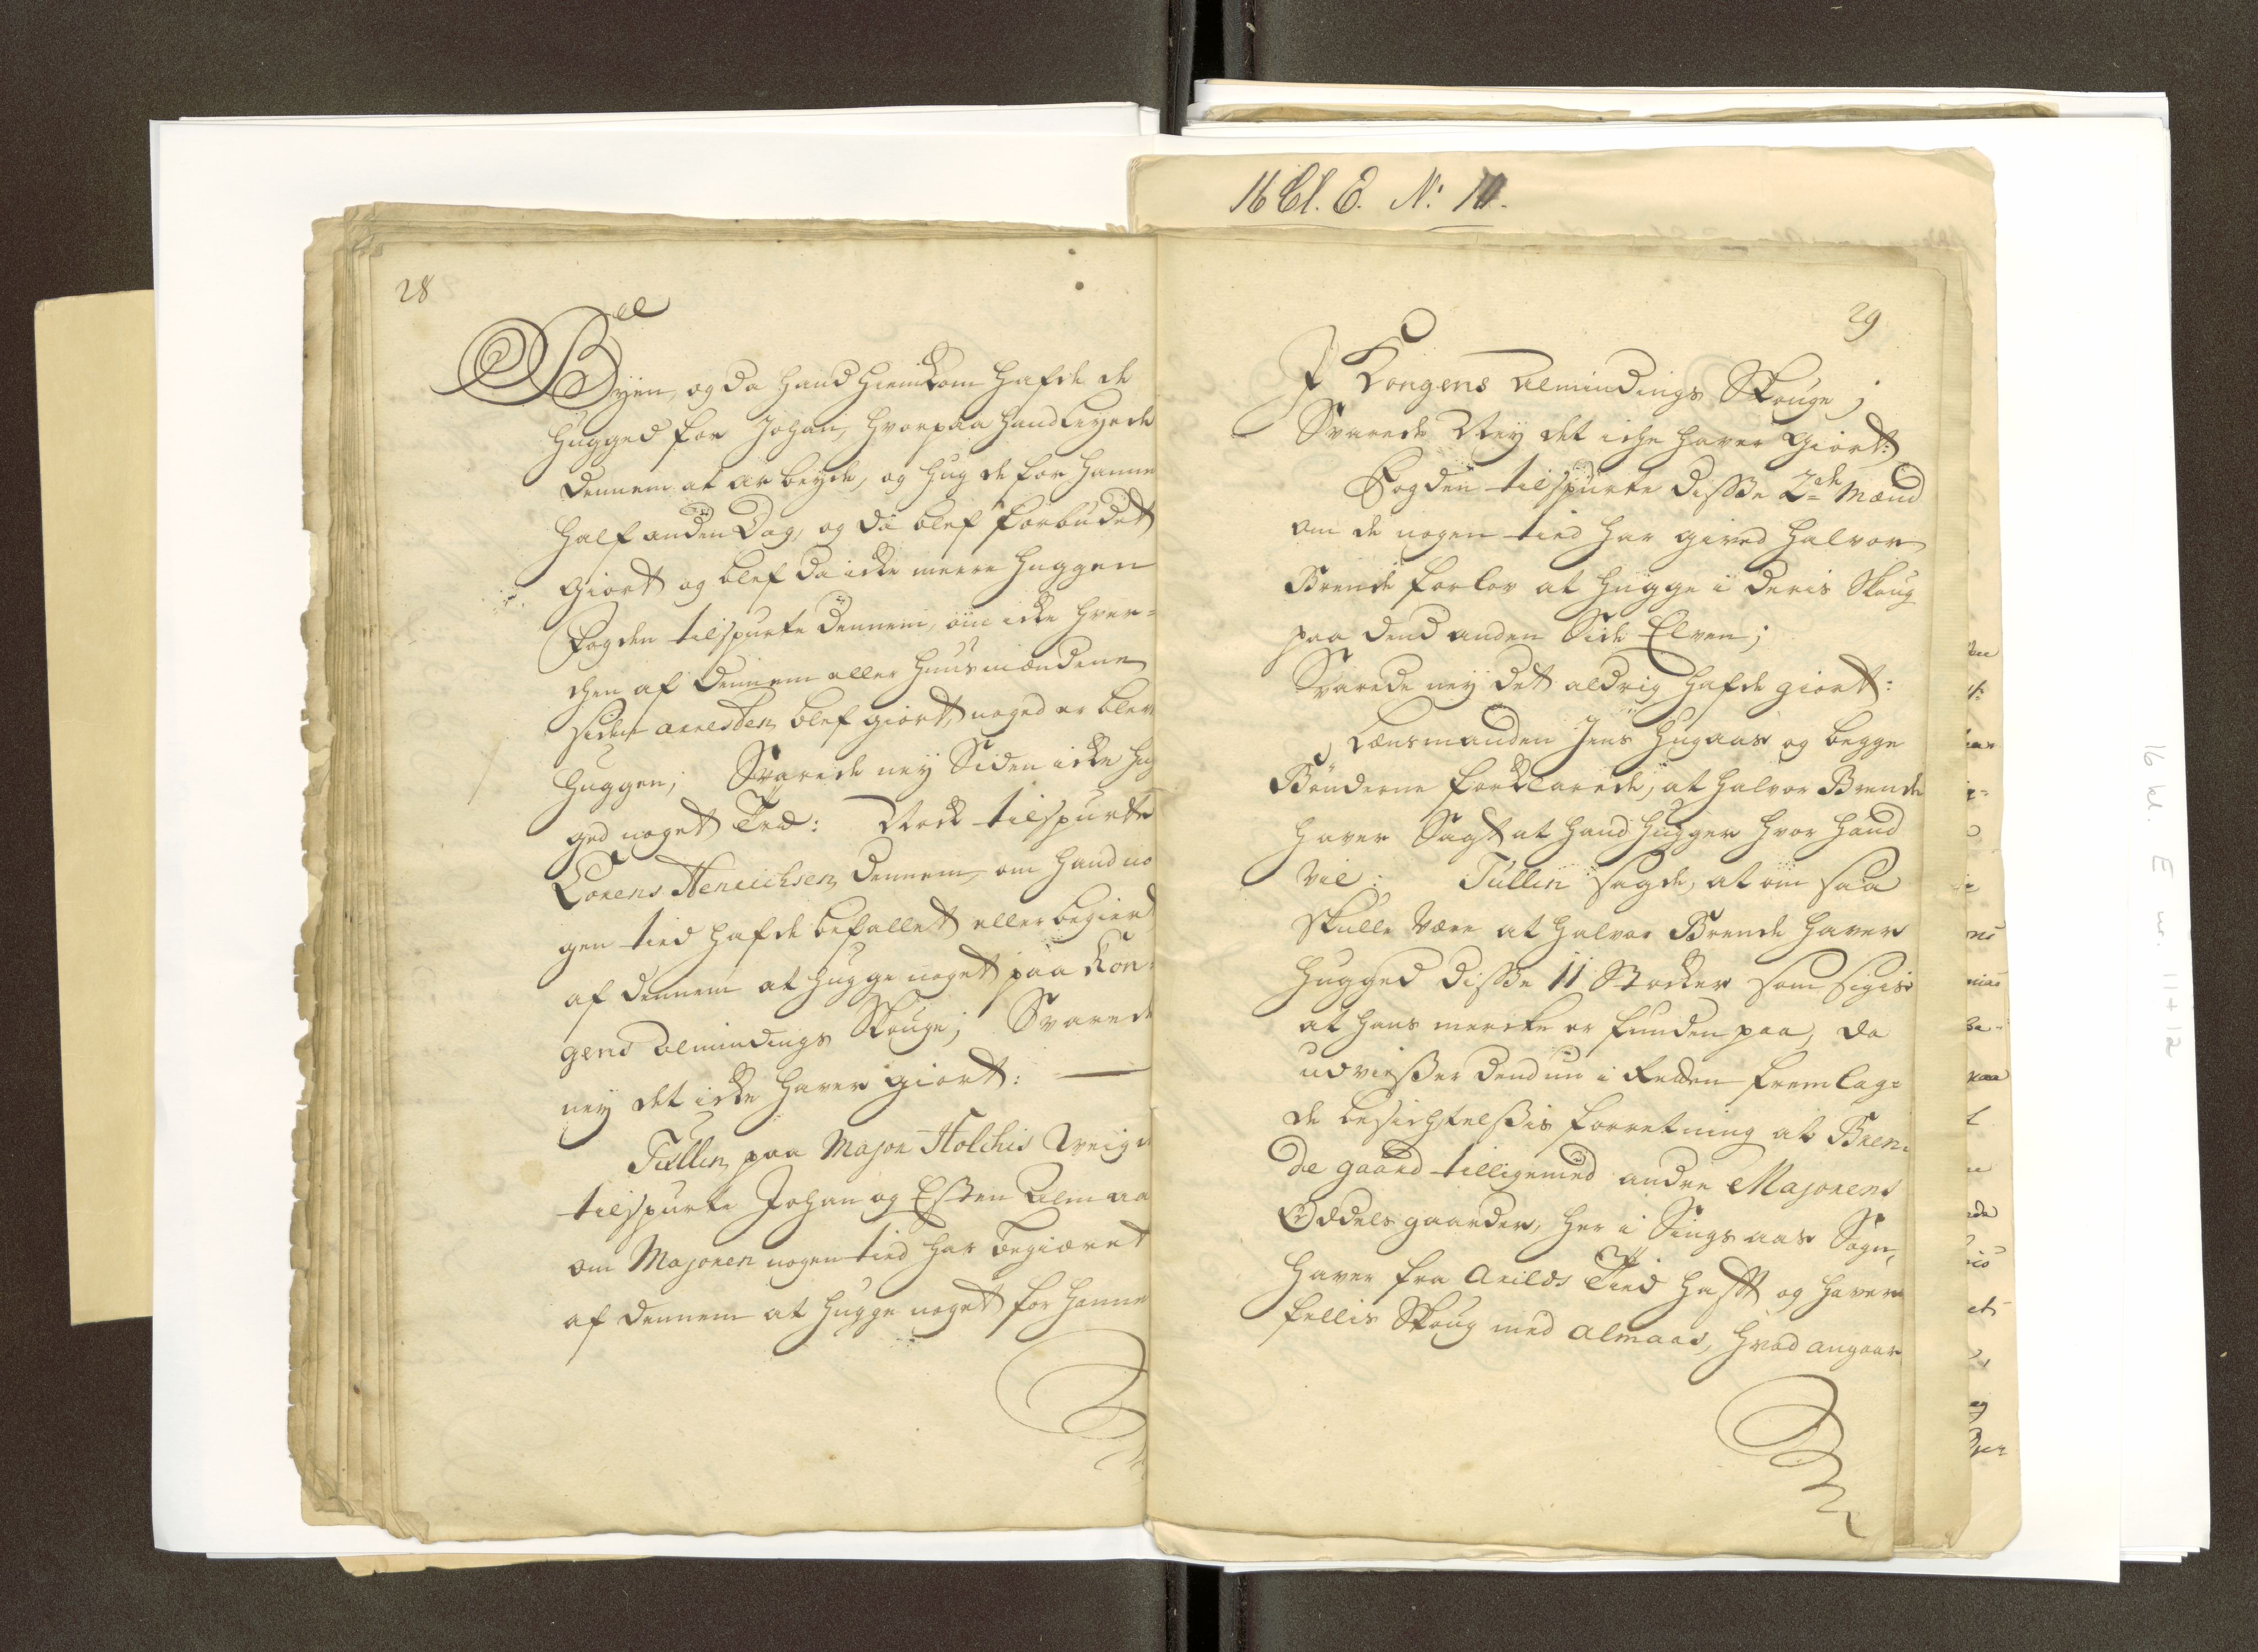 16 Cl. E. N: 10.
28
Byen, og da hand hiemkom hafde de
hugged for Johan, hvorpaa hand leyede
dennem at arbeyde, og hug de for hanne
half anden Dag, og da blef forbudet
giort og blef da icke meere huggen
Fogden tilspurte dennem, om icke hver=
chen af dennem eller huusmændene
siden arresten blef giort, noged er blev
huggen; Svarede ney Siden icke hug
ged noget Træ: Nock tilspurte
Lorens Henrichsen dennem, om hand no
gen tied hafde befallet eller begiert
af dennem at hugge noget paa Kon=
gens Almindings Skouge; Svarede
ney det icke haver giort:
Tullin paa Major Holchis Veigne
tilspurte Johan og Esten Almaa
om Majoren nogen tied har begiæret
af dennem at hugge noget for hanne
29
J Kongens Almindings Skouge;
Svarede Ney det iche haver giort:
Fogden tilspurte disse 2de Mænd
om de nogen tied har gived Halvor
Brende forlov at hugge i deris Skoug
paa dend anden Side Elven;
Svarede ney det aldrig hafde giort:
Lænsmanden Jens Hugaas og begge
Bønderne forklarede, at Halvor Brende
haver Sagt at hand hugger hvor hand
vil: Tullin sagde, at om saa
skulle være at Halvor Brende haver
hugged disse 11 Stocker som sigis
at hans mercke er funden paa, da
udviser dend nu i Retten fremlag=
de besichtelsis forretning at Bren=
de gaard tilligemed andre Majorens
Oddels gaarder, her i Singsaas Sogn,
haver fra Arilds Tied haft og haver
fellis Skoug med Almaas, hvad angaar
16 kl. E nr. 11+12